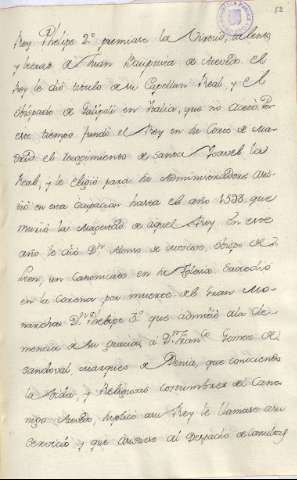 52
Rey Phelipe 2º premiase la Virtud, talento
y letras de Juan Bauptista de Acevedo el
Rey le dió titulo de su Capellan Real, y el
Obispado de en Italia, que no aceptó. En
este tiempo fundó el Rey en su Corte de Ma-
drid el recogimiento de Santa Ysavel la
Real, y le eligió para su Administrador asis-
tió en esta ocupacion hasta el año 1598 que
murió la Magestad de aquel Rey. En este
año le dió Dn. Alonso de Obispo de
un Canonicato en su Yglesia
en la Corona por muerte del gran Mo-
narcha Dn. Phelipe 3º que admitió á la Cle-
mencia de su gracia, á Dn. Franco. Gomez de
Sandoval, Marques de Denia, que conociendo
la Vida, y Religiosas costumbres del Cano-
nigo Acevedo, suplicó al Rey le llamase á su
servicio y que asistiese al Despacho de